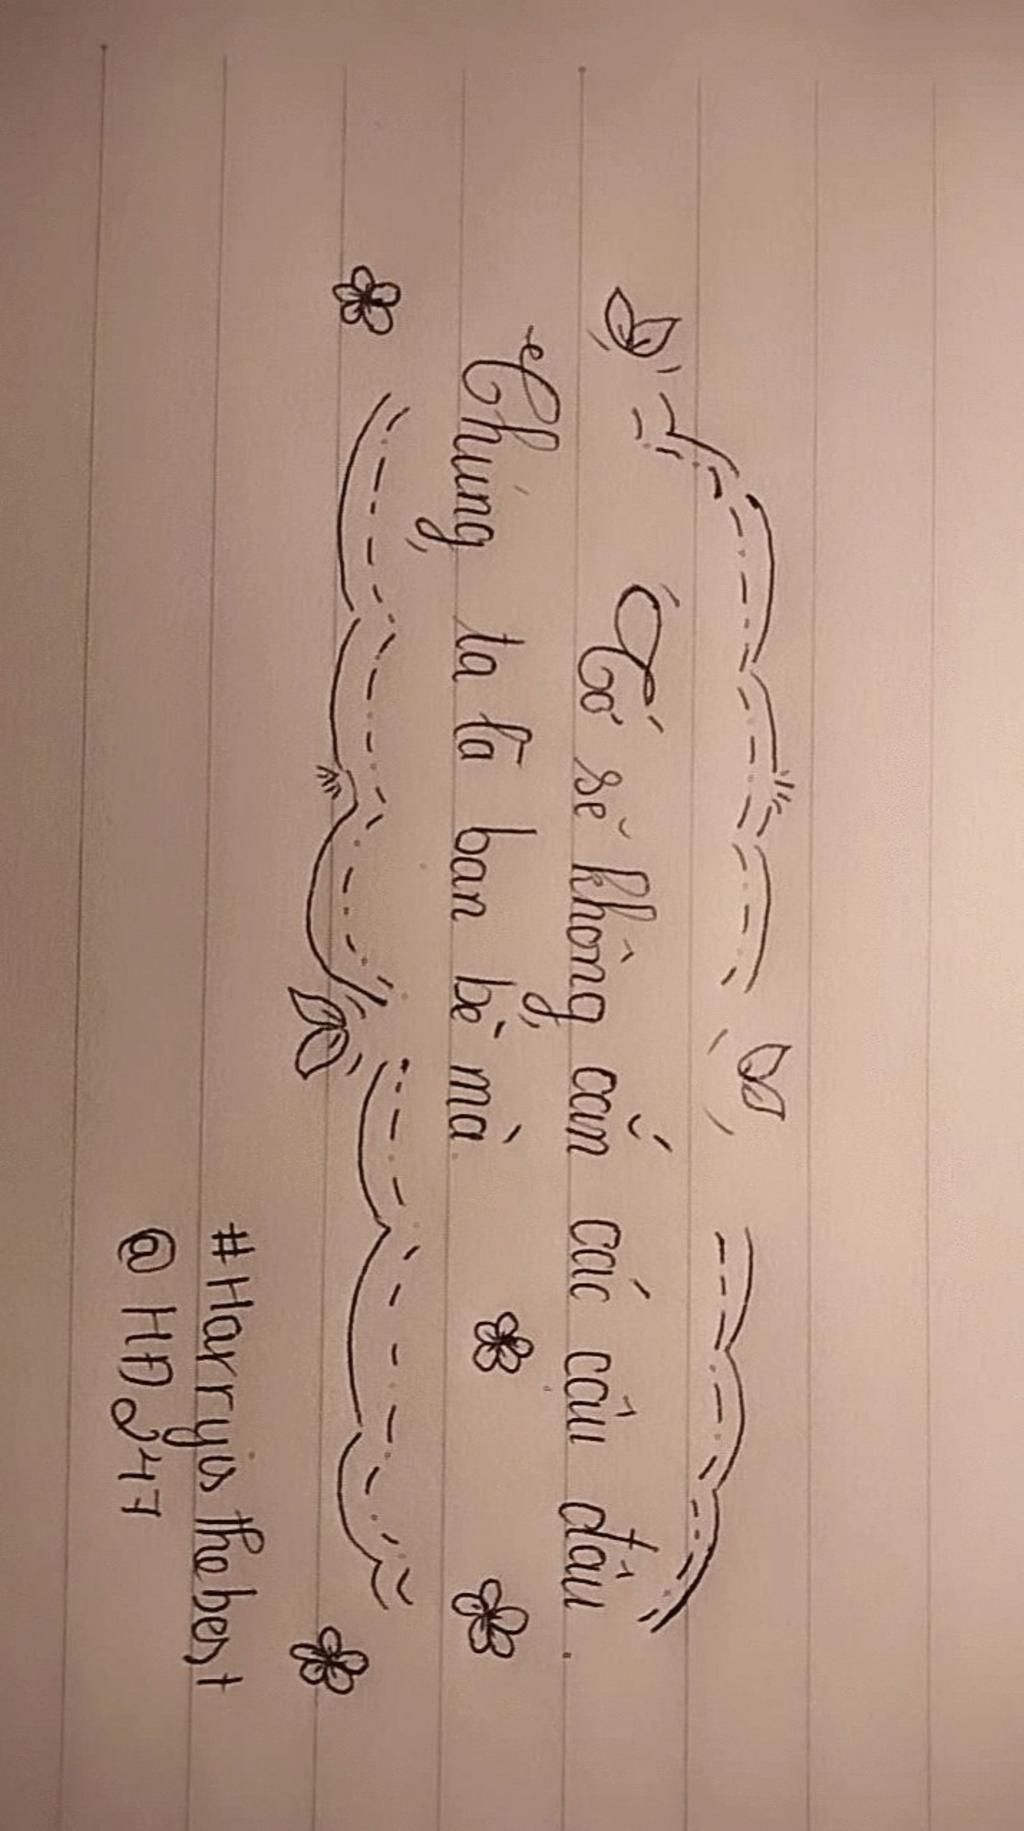 Tớ sẽ không cắn các cậu đâu.
Chúng ta là bạn bè mà.
#Harryisthebest
@HD247